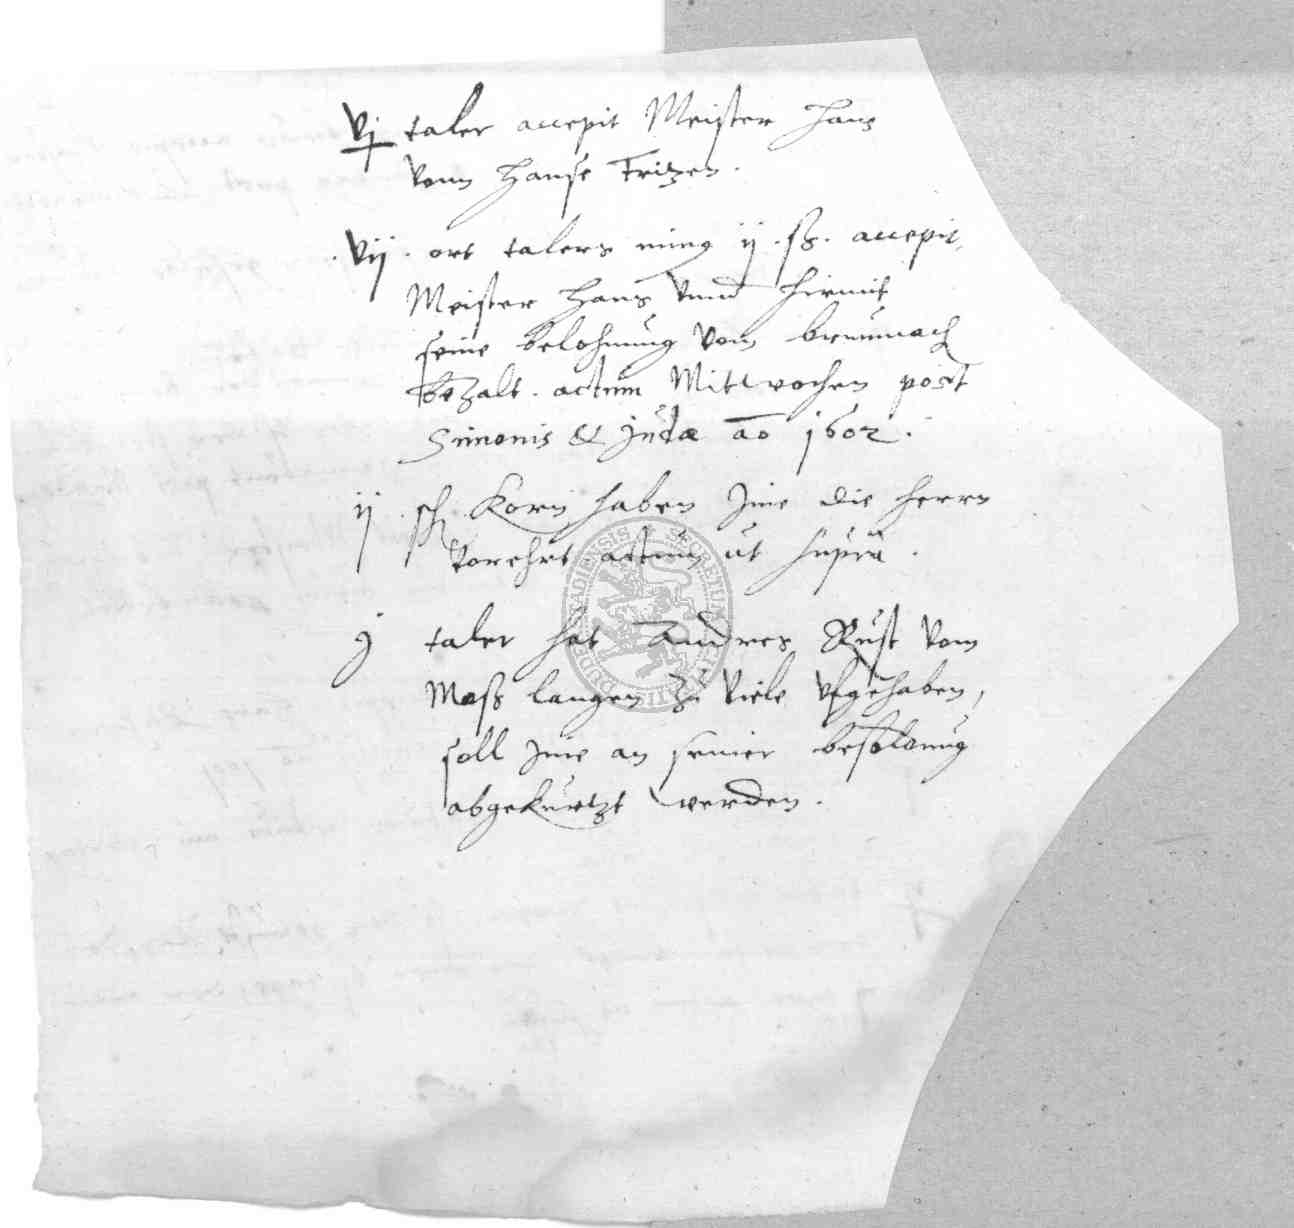 vj taler accepit Meister Hans
vonn Hanse Fritzen.
vij. ort talers ming ij. ß. accepit
Meister Hans vnnd hiemit
seine belohnung vom
bezalt. actum Mittwochen post
Simonis & Judæ ao 1602.
ij sch. Korn haben Jme die herrn
vorehrt actum ut supra.
j taler hat Andres Rust vom
Maß langen zu viele vfgehaben,
soll Jme an seiner besolong
abgekürtzt werden.